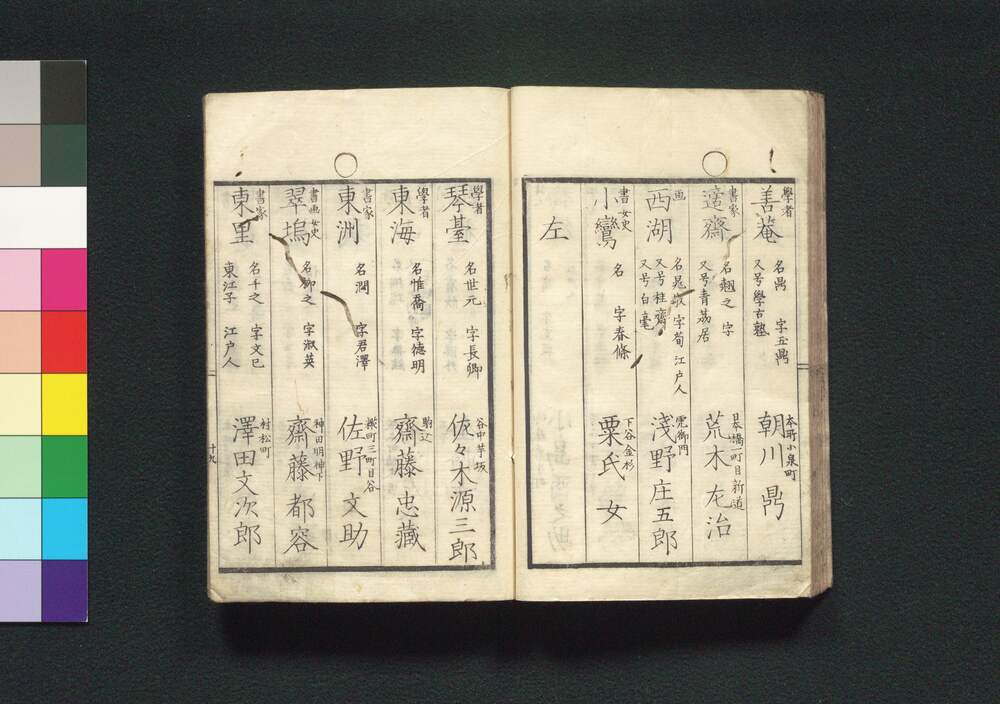 學者
善菴
名鼎 字五鼎
又号學古塾
本所小泉町
朝川鼎
書家
遼齋
名翹之 字
又号青茘居
日本橋二町目新道
荒木左治
画
西湖
名晁
字荀 江戸人
又号桂齋
又号白毫
虎御門
淺野庄五郎
書 女史
小鸞
名 字春條
下谷金杉
粟氏女
左
學者
琴臺
名世元 字長卿
谷中芋坂
佐々木源三郎
學者
東海
名惟喬 字德明
駒込
齋藤忠藏
書家
東洲
名潤 字君澤
糀町三町目谷
佐野文助
書画 女史
翠塢
名卿之 字淑英
神田明神下
齋藤都容
書家
東里
名千之 字文已
東江子 江戸人
村松町
澤田文次郎
十九